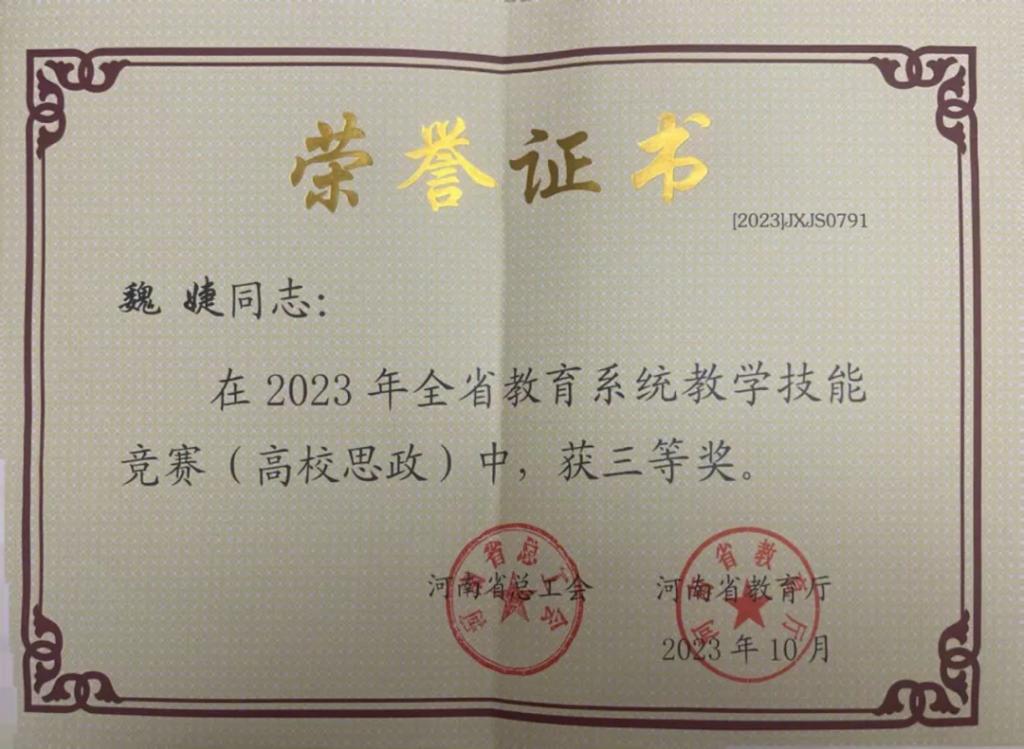 荣誉证书
[2023]JXJS0791
魏 婕同志：
在 2023 年全省教育系统教学技能
竞赛（高校思政）中，获三等奖。
河南省总工会 河南省教育厅
2023 年 10 月